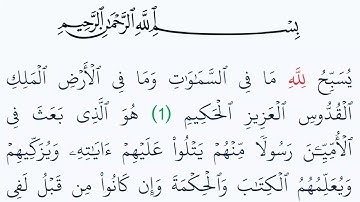 بِسْمِ ٱللَّهِ ٱلرَّحْمَٰنِ ٱلرَّحِيمِ
يُسَبِّحُ لِلَّهِ مَا فِى ٱلسَّمَٰوَٰتِ وَمَا فِى ٱلْأَرْضِ ٱلْمَلِكِ
ٱلْقُدُّوسِ ٱلْعَزِيزِ ٱلْحَكِيمِ (1) هُوَ ٱلَّذِى بَعَثَ فِى
ٱلْأُمِّيِّـۧنَ رَسُولًا مِّنْهُمْ يَتْلُوا۟ عَلَيْهِمْ ءَايَٰتِهِۦ وَيُزَكِّيهِمْ
وَيُعَلِّمُهُمُ ٱلْكِتَٰبَ وَٱلْحِكْمَةَ وَإِن كَانُوا۟ مِن قَبْلُ لَفِى